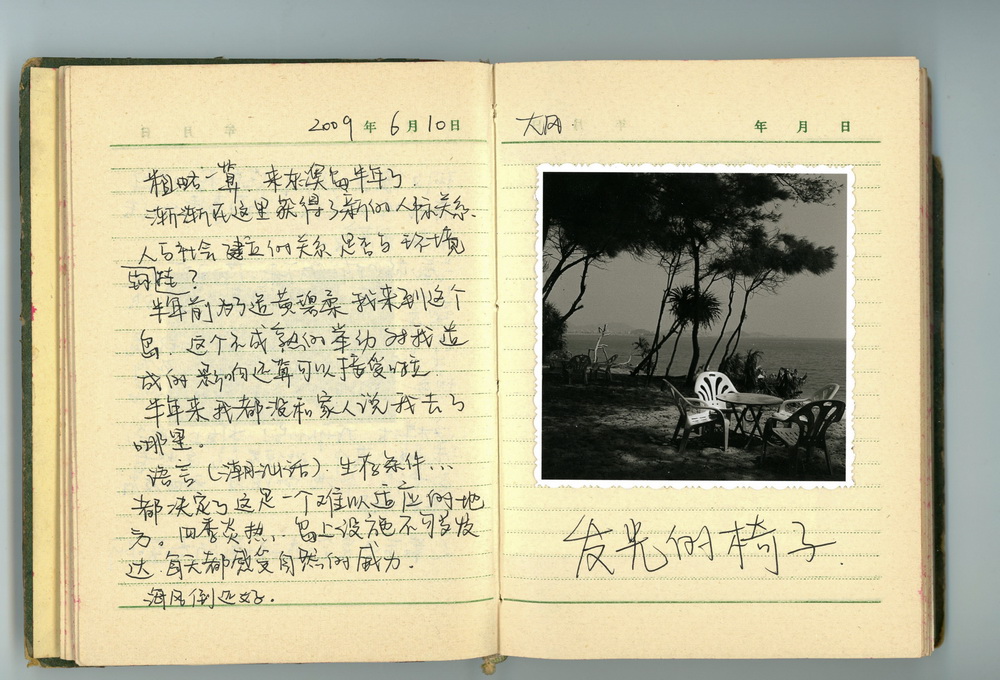 2009 年 6 月 10 日
粗略一算, 来东澳岛半年了.
渐渐在这里获得了新的人际关系.
人与社会建立的关系是否与环境
挂?
半年前为了追黄碧柔我来到这个
岛. 这个不成熟的举动对我造
成的影响还算可以接受啦.
半年来我都没和家人说我去了
哪里。
语言(潮汕话). 生存条件...
都决定了这是一个难以适应的地
方。四季炎热.. 岛上设施不可发
达. 每天都感受自然的威力.
海风倒还好.
大风. 年 月 日
发光的椅子.